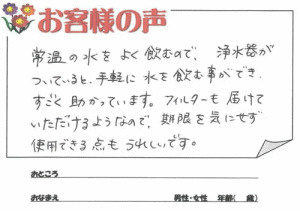 お客様の声
常温の水をよく飲むので、浄水器が
ついていると、手軽に水を飲む事ができ、
すごく助かっています。フィルターも届けて
いただけるようなので、期限を気にせず
使用できる点もうれしいです。
おところ
おなまえ 男性・女性 年齢( 歳)